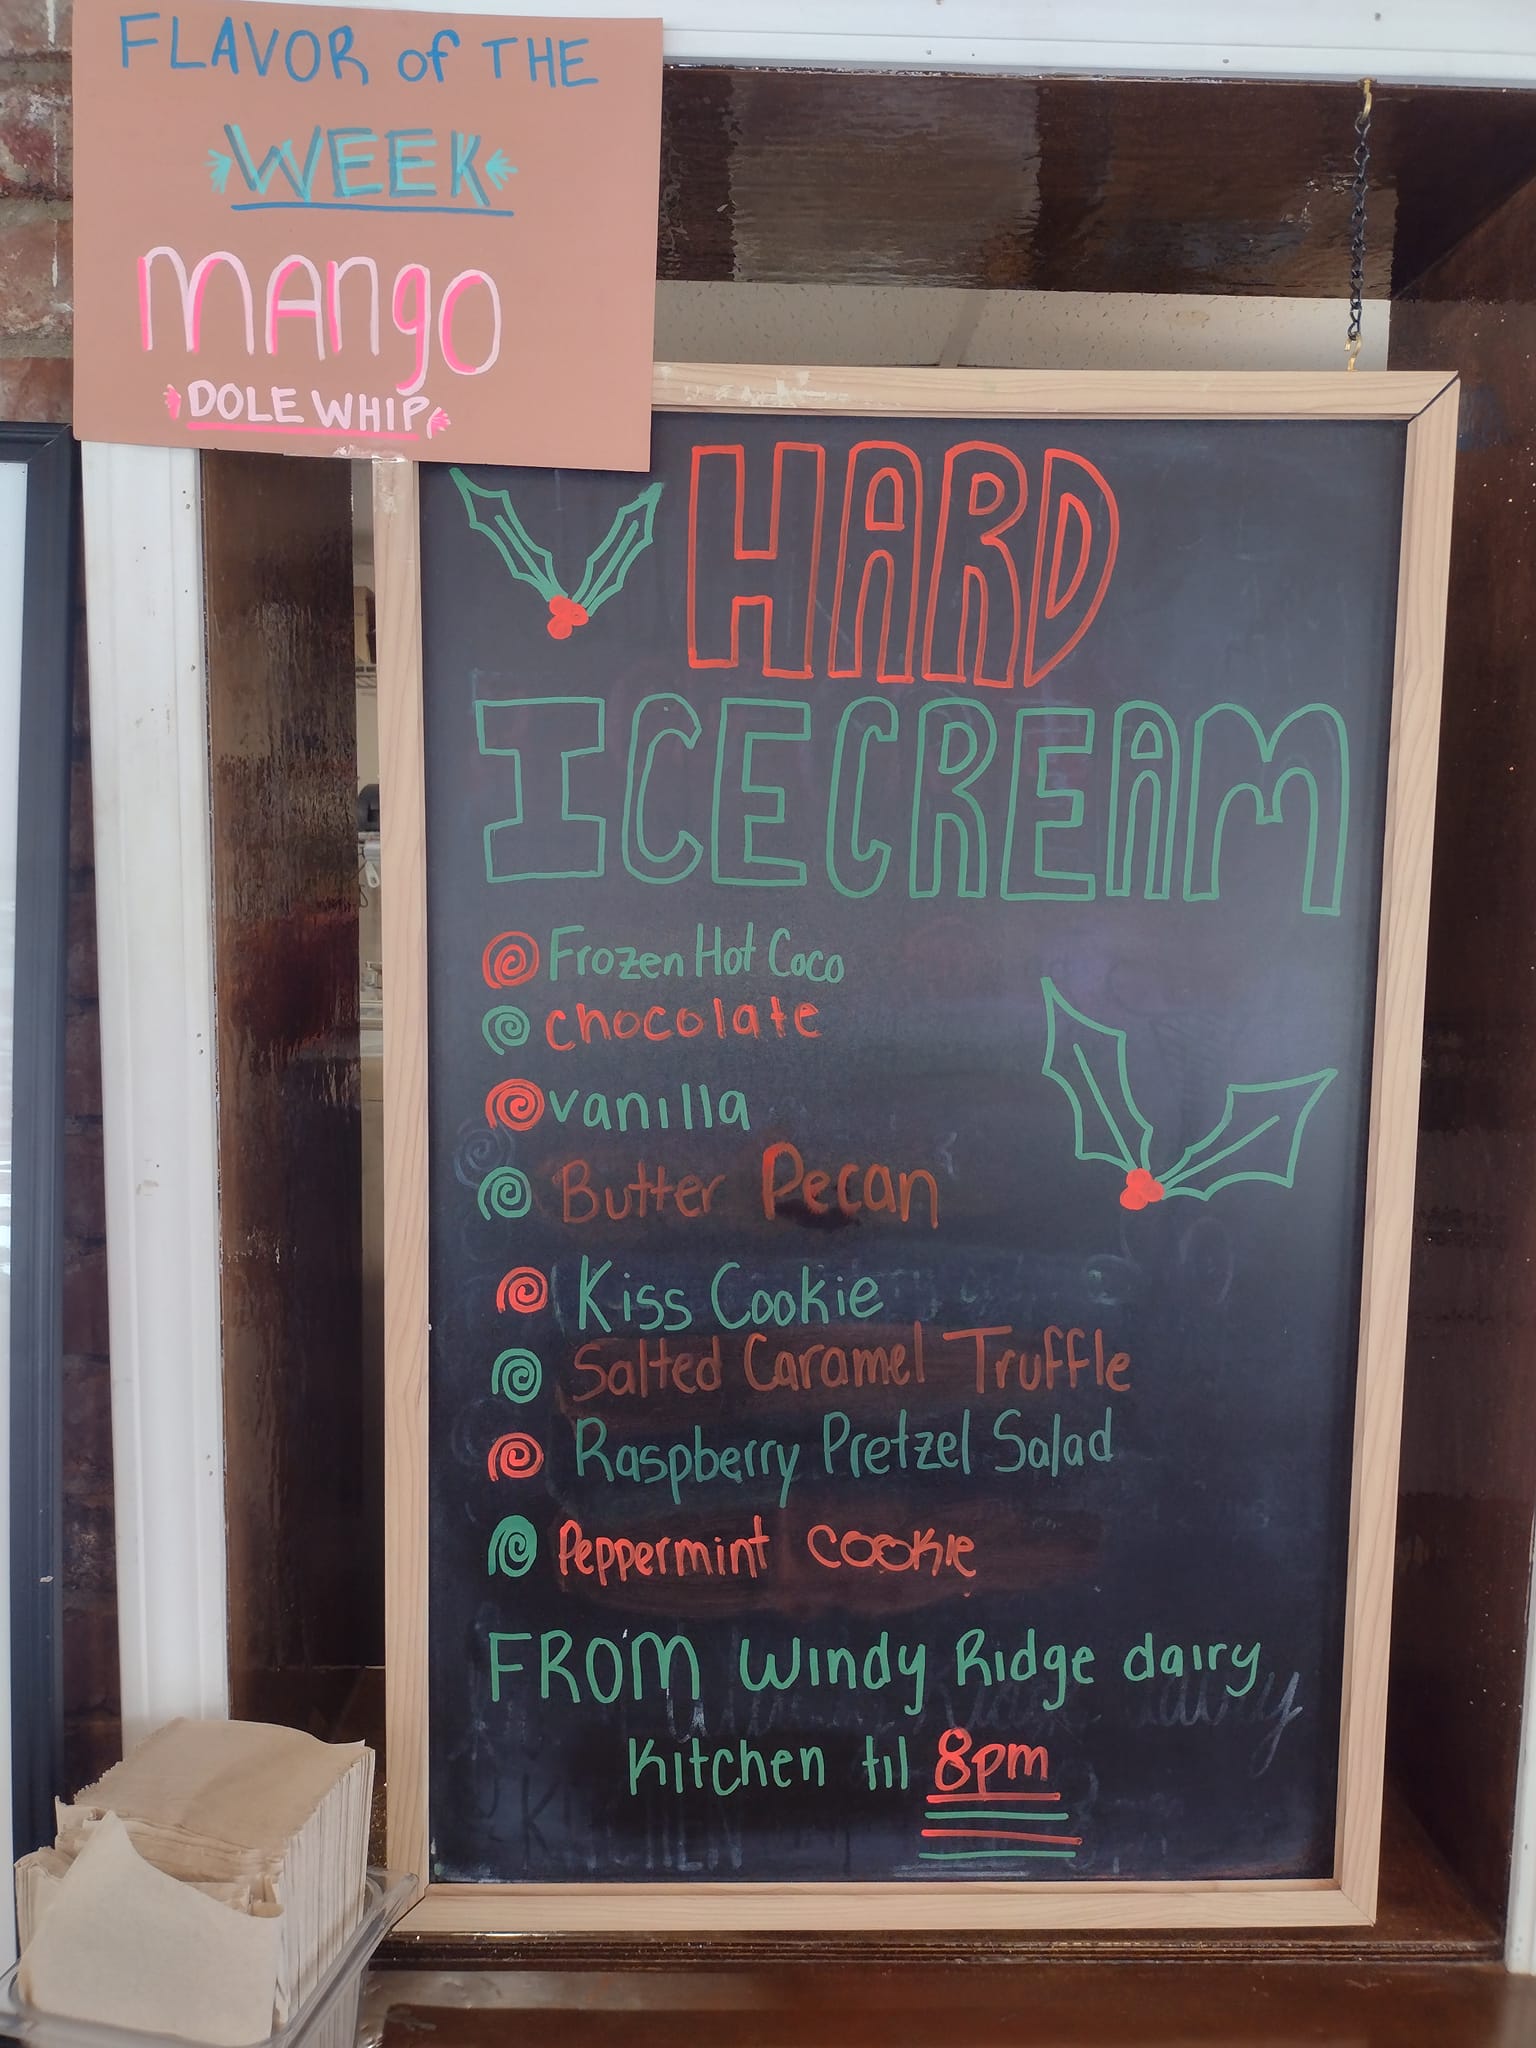 FLAVOR of THE
WEEK
MANgO
DOLE WHIP
HARD
ICECREAM
Frozen Hot Coco
chocolate
vanilla
Butter Pecan
Kiss Cookie
Salted Caramel Truffle
Raspberry Pretzel Salad
Peppermint COOKIE
FROM Windy Ridge dairy
Kitchen til 8pm